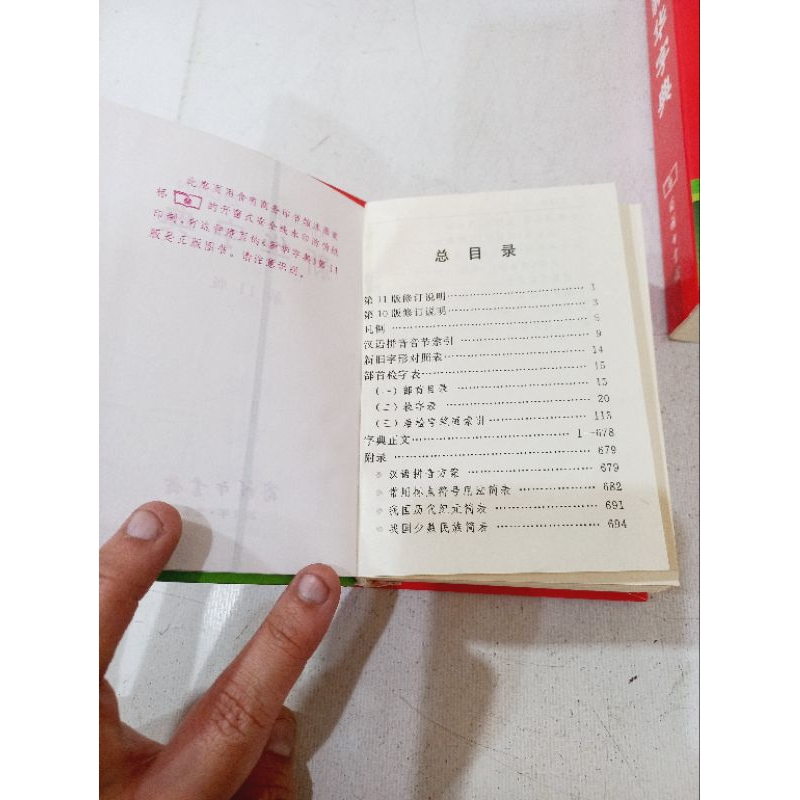 此忽页用含有商务印书馆注册商
标的开窗式安全线水印防伪纸
印制,有这种扉页的《新华字典》第11
版是正版图书。请注意识别。
总目录
第11版修订说明 1
第10版修订说明 3
凡例 5
汉语拼音音节索引 9
新旧字形对照表 14
部首检字表 15
(一)部首目录 15
(二)检字表 20
(三)难检字笔画索引 113
字典正文 1—678
附录 679
汉语拼音方案 679
常用标点符号用法简表 682
我国历代纪元简表 691
我国少数民族简表 694
华字典
商务印书馆